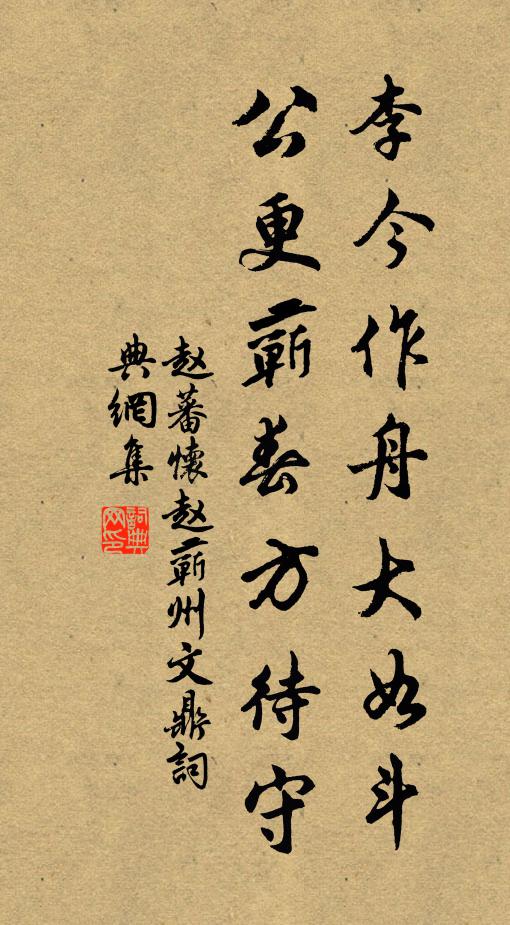 李今作舟大如斗
公更蕲春方待守
赵蕃懷赵蕲州文鼎詞
典網集
詞典网印